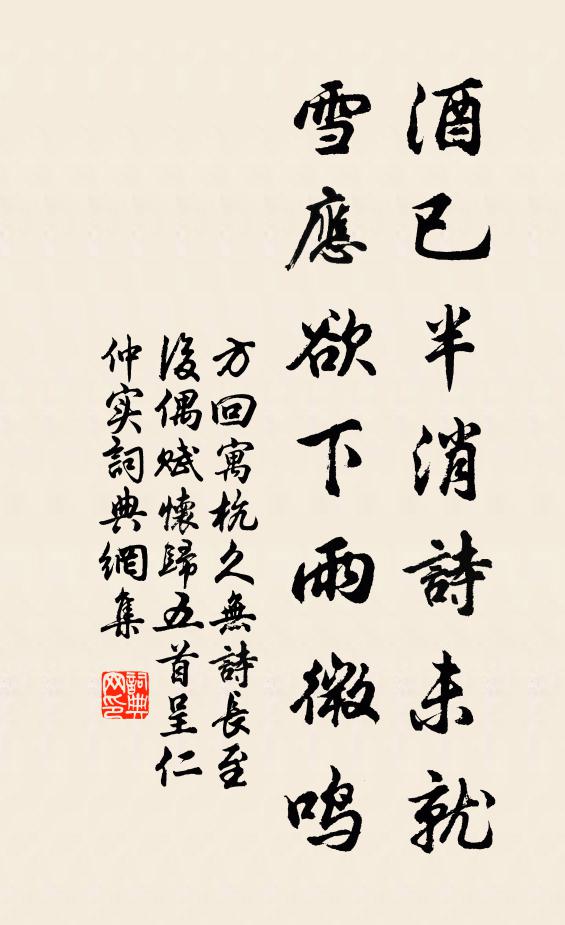 酒已半消詩未就
雪應欲下雨微鸣
方回寓杭久無詩長至
後偶赋懷歸五首呈仁
仲实詞典網集
詞典
网印